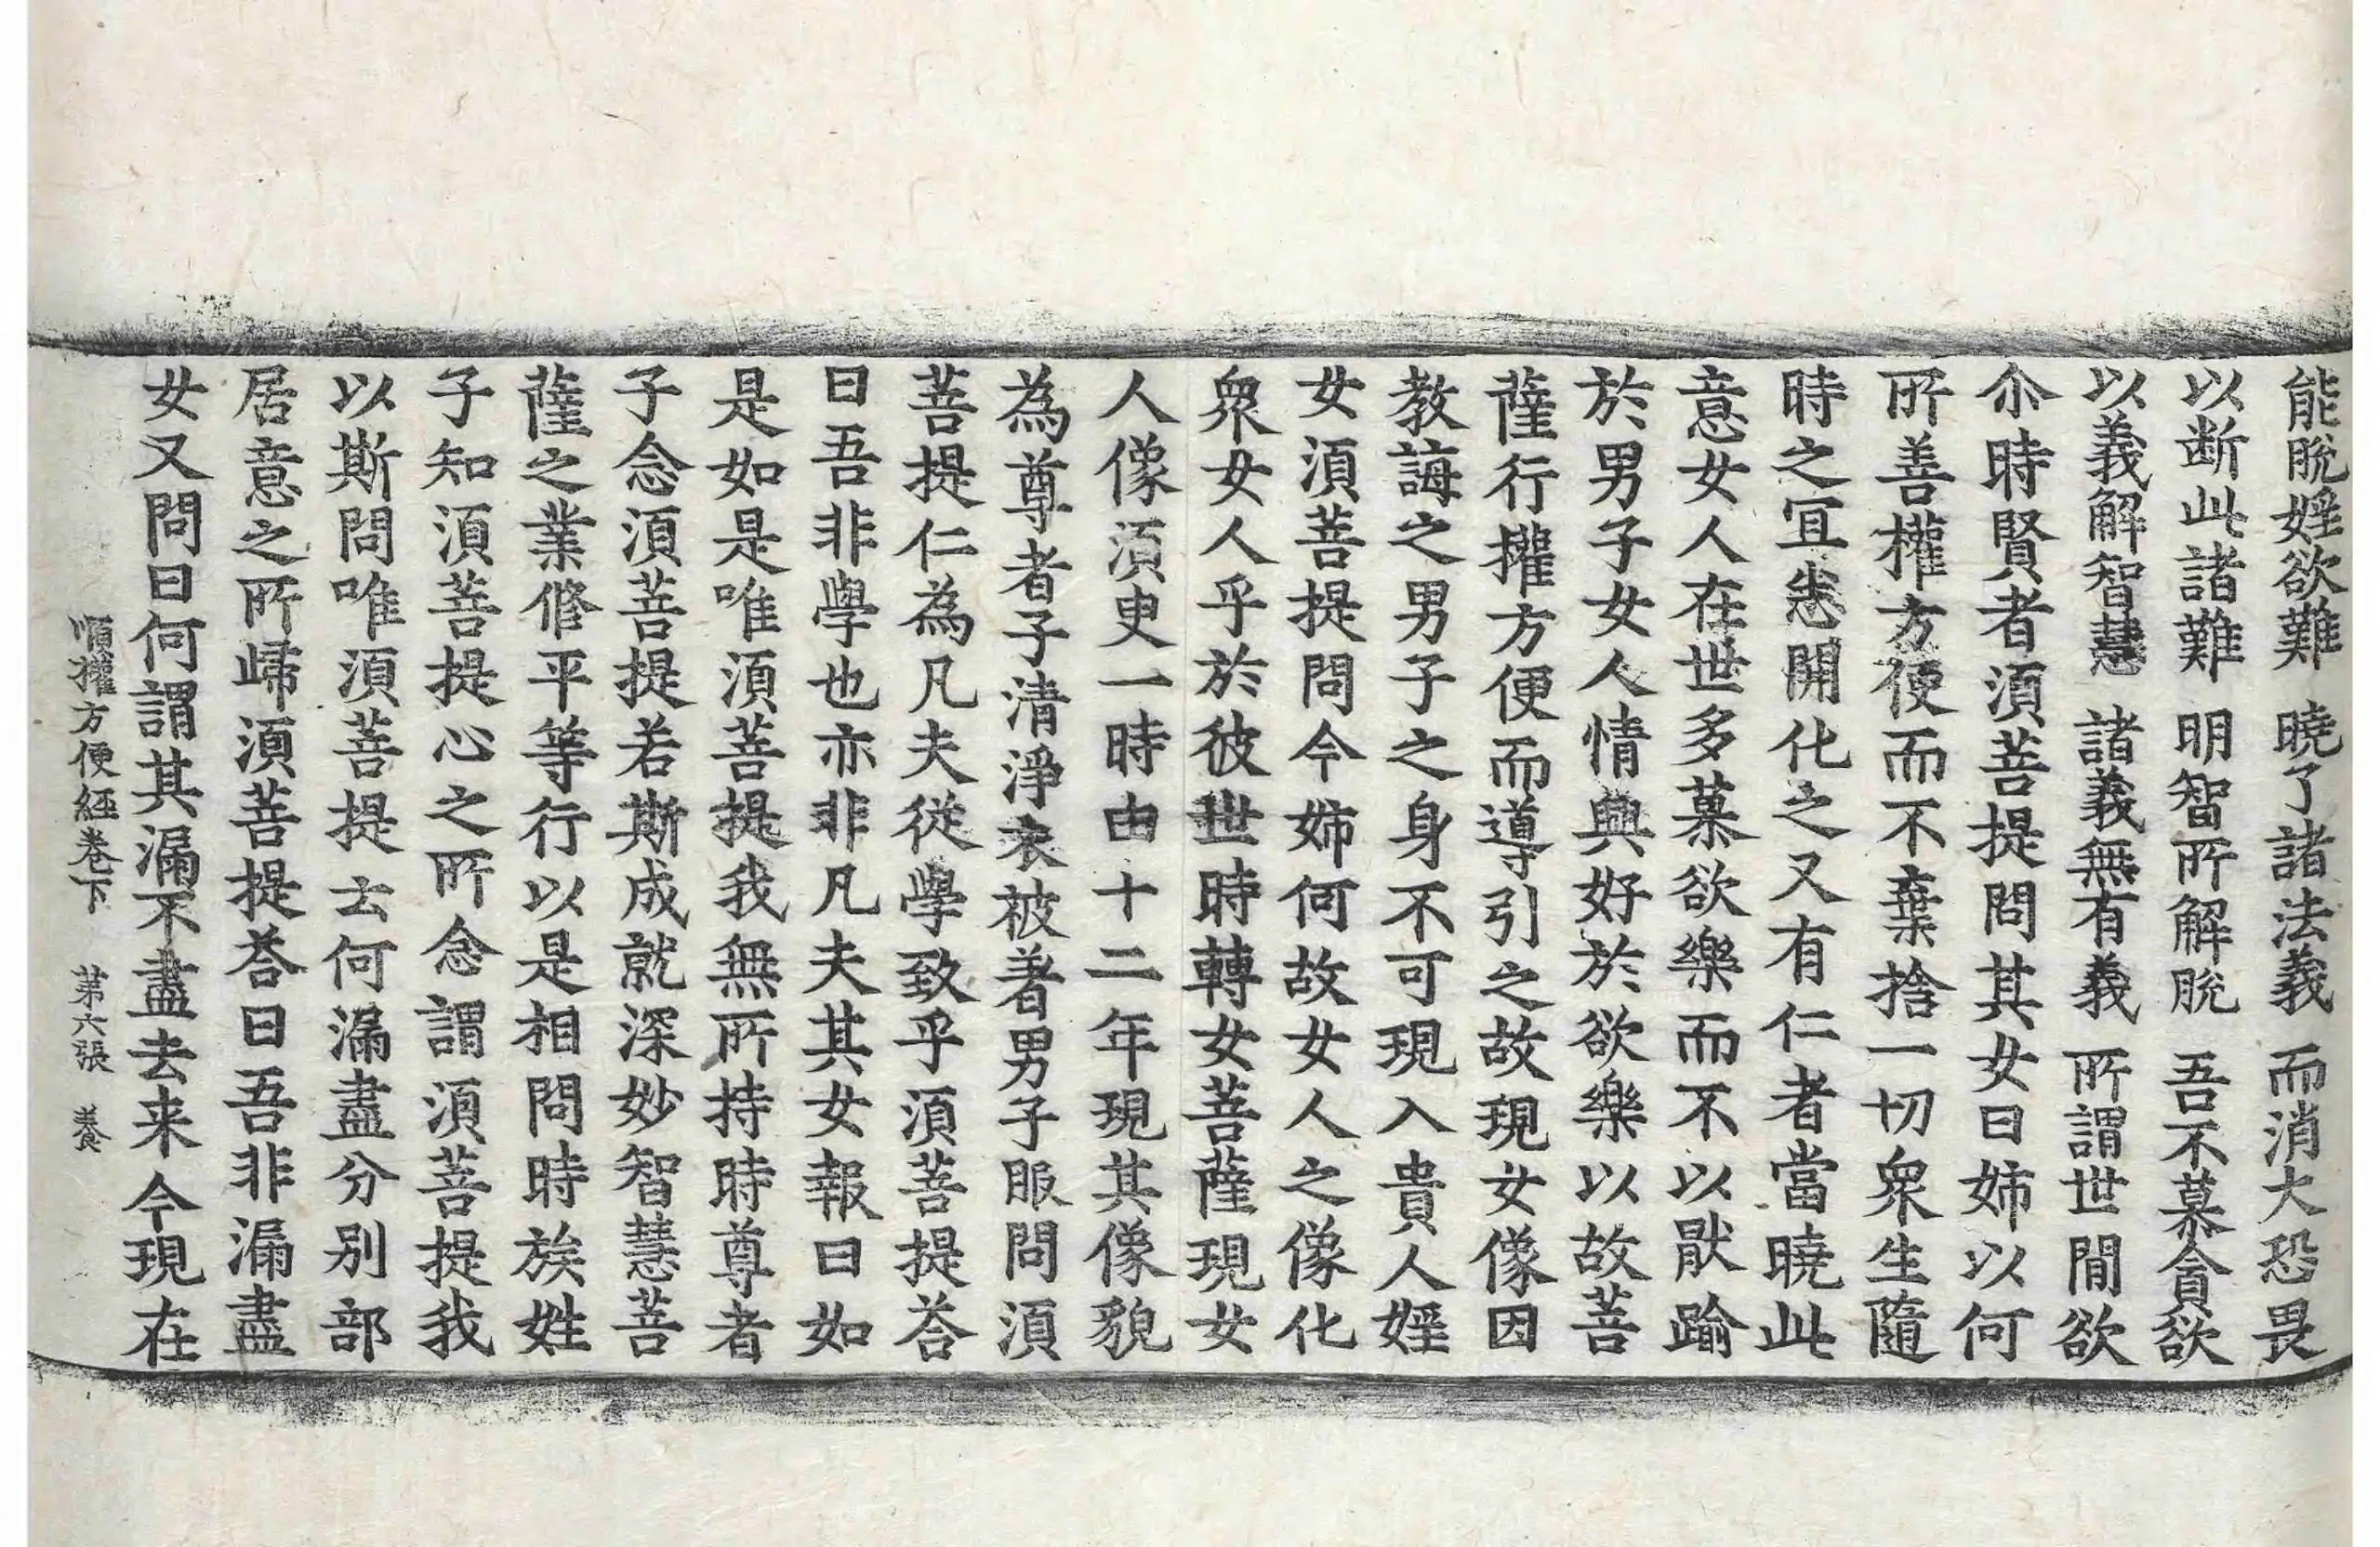 能脫婬欲難　曉了諸法義　而消大恐畏
以断此諸難　明智所解脫　吾不慕貪欲
以義解智慧　諸義無有義　所謂世閒欲
尒時賢者湏菩提問其女曰姉以何
所善權方便而不棄捨一切衆生隨
時之宜恙開化之又有仁者當曉此
意女人在世多慕欲樂而不以猒踰
於男子女人情興好於欲樂以故菩
薩行權方便而導引之故現女像因
教誨之男子之身不可現入貴人婬
女湏菩提問今姉何故女人之像化
衆女人乎於彼世時轉女菩薩現女
人像湏臾一時由十二年現其像貌
為尊者子清淨衣被著男子服問湏
菩提仁為凡夫從學致乎湏菩提荅
曰吾非學也亦非凡夫其女報曰如
是如是唯湏菩提我無所持時尊者
子念湏菩提若斯成就深妙智慧菩
薩之業脩平等行以是相問時族姓
子知湏菩提心之所念謂湏菩提我
以斯問唯湏菩提云何漏盡分別部
居意之所歸湏菩提荅曰吾非漏盡
女又問曰何謂其漏不盡去来今現在
順權方便經卷下　第六張　養